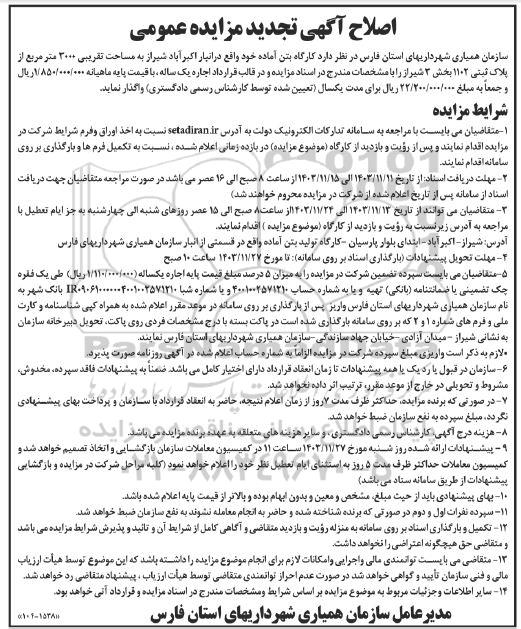 اصلاح آگهی تجدید مزایده عمومی
سازمان همیاری شهرداریهای استان فارس در نظر دارد کارگاه بتن آماده خود واقع درانبار اکبرآباد شیراز به مساحت تقریبی ۳۰۰۰ متر مربع از
پلاک ثبتی ۱۱۰۲ بخش ۳ شیراز را با مشخصات مندرج در اسناد مزایده و در قالب قرارداد اجاره یک ساله، با قیمت پایه ماهیانه ۱/۸۵۰/۰۰۰/۰۰۰ریال
و جمعاً به مبلغ ۲۲/۲۰۰/۰۰۰/۰۰۰ ریال برای مدت یکسال (تعیین شده توسط کارشناس رسمی دادگستری) واگذار نماید.
شرایط مزایده
۱-متقاضیان می بایست با مراجعه به سامانه تدارکات الکترونیک دولت به آدرس setadiran.ir نسبت به اخذ اوراق وفرم شرایط شرکت در
مزایده اقدام نمایند و پس از رؤیت و بازدید از کارگاه (موضوع مزایده) در بازده زمانی اعلام شده ، نسبت به تکمیل فرم ها و بارگذاری بر روی
سامانه اقدام نمایند.
۲- مهلت دریافت اسناد: از تاریخ ۱۴۰۳/۱۱/۱۱ الی ۱۴۰۳/۱۱/۱۵ از ساعت ۸ صبح الی ۱۶ عصر می باشد در صورت مراجعه متقاضیان جهت دریافت
اسناد از سامانه پس از تاریخ اعلام شده از شرکت در مزایده محروم خواهند شد)
۳- متقاضیان می توانند از تاریخ ۱۴۰۳/۱۱/۱۳ الی ۱۴۰۳/۱۱/۲۴ از ساعت ۸ صبح الی ۱۵ عصر روزهای شنبه الی چهارشنبه به جز ایام تعطیل با
مراجعه به آدرس زیرنسبت به رؤیت و بازدید از کارگاه (موضوع مزایده ) اقدام نمایند.
آدرس: شیراز-اکبرآباد- ابتدای بلوار پارسیان -کارگاه تولید بتن آماده واقع در قسمتی از انبار سازمان همیاری شهرداریهای فارس
۴- مهلت تحویل پیشنهادات (بارگذاری اسناد بر روی سامانه): تا مورخ ۱۴۰۳/۱۱/۲۷ ساعت ۱۰ صبح
۵-متقاضیان می بایست سپرده تضمین شرکت در مزایده را به میزان ۵ درصد مبلغ قیمت پایه اجاره یکساله (۱/۱۱۰/۰۰۰/۰۰۰ ریال) طی یک فقره
چک تضمینی یا ضمانتنامه (بانکی) تهیه و یا به شماره حساب ۴۰۰۱۰۰۲۵۷۱۲۱۰ و یا شماره شبا بانک شهر به
نام سازمان همیاری شهرداریهای استان فارس واریز پس از بارگذاری بر روی سامانه در موعد مقرر اعلام شده به همراه کپی شناسنامه و کارت
ملی و فرم های شماره ۱ و ۲ که بر روی سامانه بارگذاری شده است در پاکت بسته با درج مشخصات فردی روی پاکت، تحویل دبیرخانه سازمان
به نشانی شیراز -میدان آزادی -خیابان جهاد سازندگی-سازمان همیاری شهرداریهای استان فارس نمایند.
•لازم به ذکر است واریزی مبلغ سپرده شرکت در مزایده الزاماً به شماره حساب اعلام شده در آگهی روزنامه صورت پذیرد.
۶- سازمان در قبول یا رد یک یا همه پیشنهادات تا زمان انعقاد قرارداد دارای اختیار کامل می باشد. ضمناً به پیشنهادات فاقد سپرده، مخدوش،
مشروط و تحویلی در خارج از موعد مقرر، ترتیب اثر داده نخواهد شد.
۷- در صورتی که برنده مزایده، حداکثر ظرف مدت ۷روز از زمان اعلام نتیجه، حاضر به انعقاد قرارداد با سازمان و پرداخت بهای پیشنهادی
نگردد، مبلغ سپرده به نفع سازمان ضبط خواهد شد.
۸- هزینه درج آگهی، کارشناس رسمی دادگستری، و سایر هزینه های متعلقه به عهده برنده مزایده می باشد.
۹ - پیشنهادات ارائه شده روز شنبه مورخ ۱۴۰۳/۱۱/۲۷ ساعت ۱۱ در کمیسیون معاملات سازمان بازگشایی و اتخاذ تصمیم خواهد شد و
کمیسیون معاملات حداکثر ظرف مدت ۵ روز به استثنای ایام تعطیل نظر خود را اعلام خواهد نمود (کلیه مراحل شرکت در مزایده و بازگشایی
پیشنهادات از طریق سامانه ستاد می باشد)
۱۰- بهای پیشنهادی باید از حیث مبلغ، مشخص و معین و بدون ابهام بوده و بالاتر از قیمت پایه اعلام شده باشد.
۱۱- سپرده نفرات اول و دوم در صورتی که برنده شناخته شده و حاضر به انجام معامله نشوند به نفع سازمان ضبط خواهد شد.
۱۲- تکمیل و بارگذاری اسناد بر روی سامانه به منزله رؤیت و بازدید متقاضی و آگاهی کامل از شرایط آن و تائید و پذیرش شرایط مزایده می باشد
و متقاضی حق هیچگونه اعتراضی را نخواهد داشت.
۱۳- متقاضی می بایست توانمندی مالی واجرایی وامکانات لازم برای انجام موضوع مزایده را داشته باشد که این موضوع توسط هیأت ارزیاب
مالی و فنی سازمان تأیید و گواهی خواهد شد در صورت عدم احراز توانمندی متقاضی توسط هیأت ارزیاب ، پیشنهاد متقاضی رد خواهد شد.
۱۴- سایر اطلاعات و جزئیات مربوط به موضوع مزایده بر اساس شرایط ومشخصات مندرج در اسناد مزایده و قرارداد آتی خواهد بود.
مدیرعامل سازمان همیاری شهرداریهای استان فارس
«۱۰۶-۱۵۳۸»